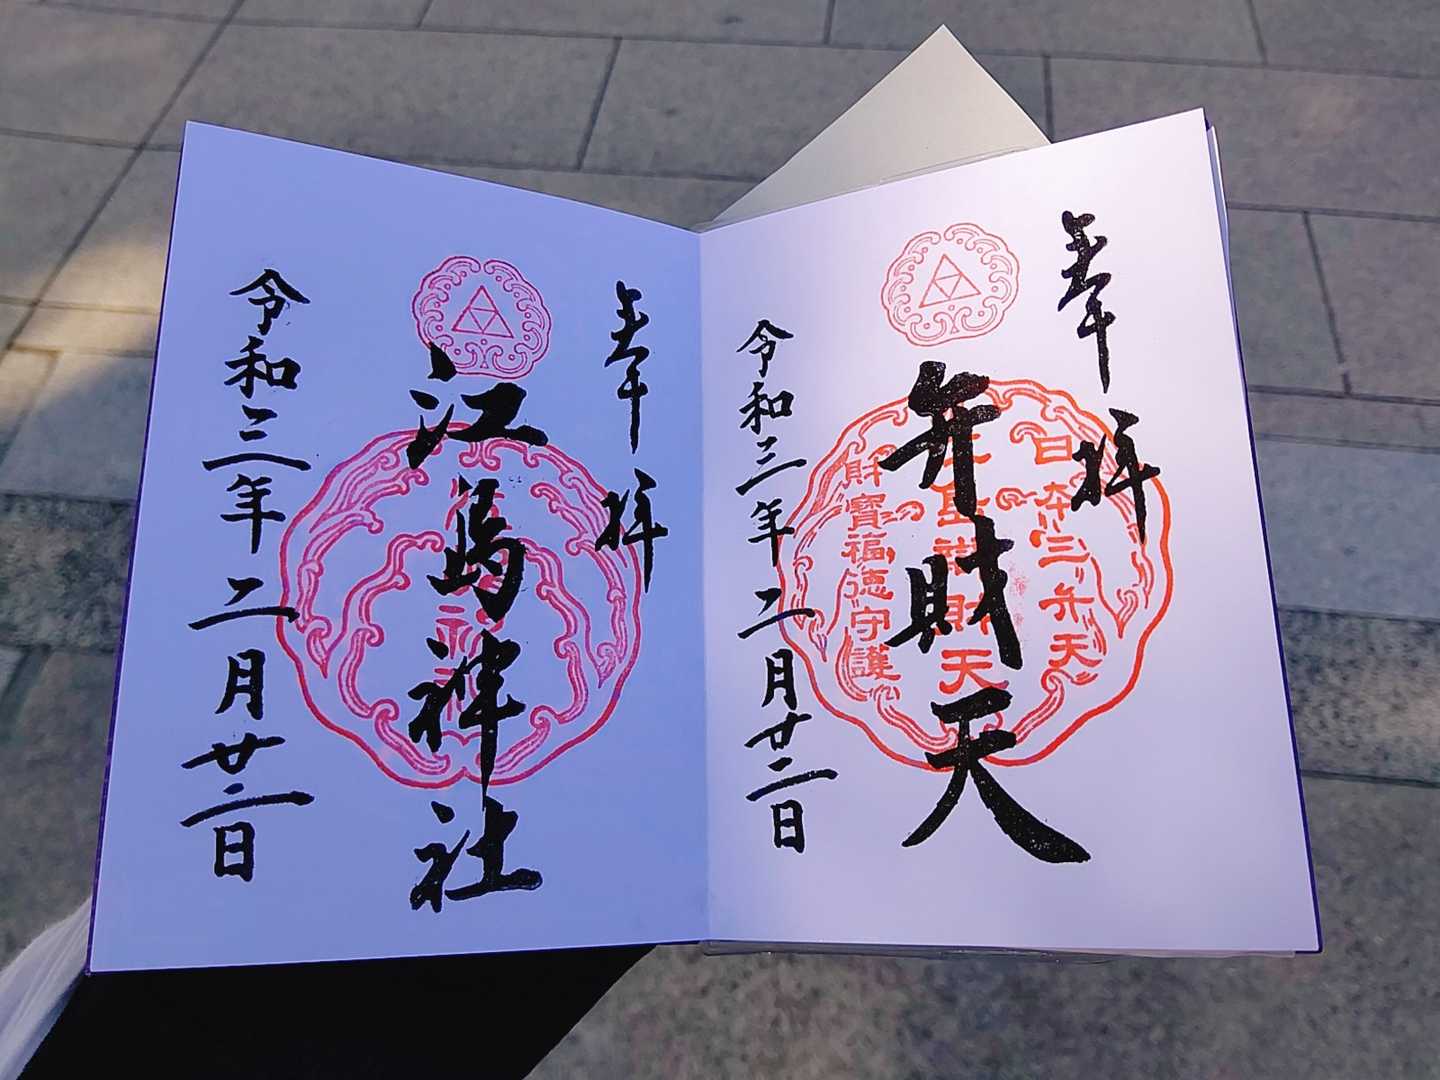 奉拝
日本三弁天
弁財天
財寶福徳守護
令和三年二月廿二日
奉拝
江島神社
令和三年二月廿二日